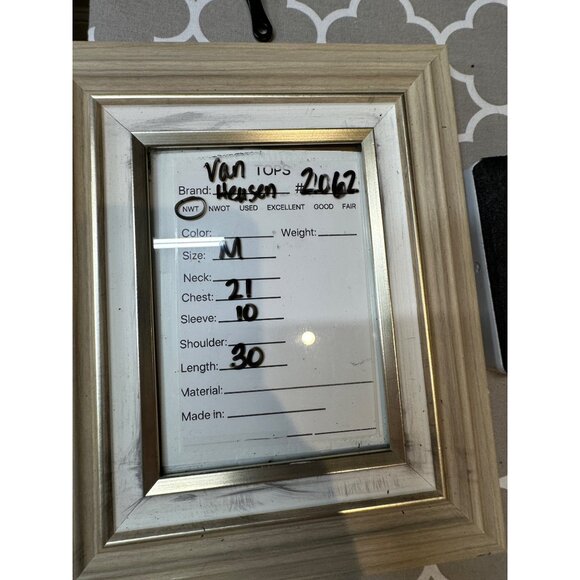 Van TOPS
Brand: Heusen #2062
NWT NWOT USED EXCELLENT GOOD FAIR
Color: Weight:
Size: M
Neck:
Chest: 21
Sleeve: 10
Shoulder:
Length: 30
Material:
Made in: